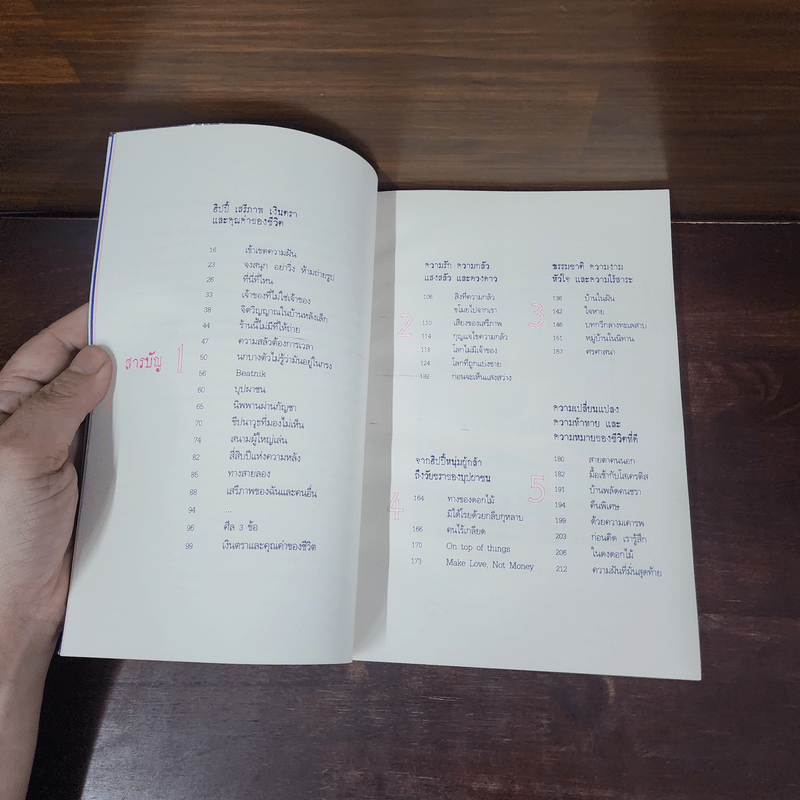 สารบัญ
1
ฮิปปี้ เสรีภาพ เงินตรา
และคุณค่าของชีวิต
16 เข้าเขตความฝัน
23 จงสนุก อย่าวิ่ง ห้ามถ่ายรูป
26 ที่นี่ที่ไหน
33 เจ้าของที่ไม่ใช่เจ้าของ
38 จิตวิญญาณในบ้านหลังเล็ก
44 ร้านนี้ไม่มีที่ให้ถ่าย
47 ความสลัวต้องการเวลา
50 นกบางตัวไม่รู้ว่ามันอยู่ในกรง
56 Beatnik
60 บุปผาชน
65 นิพพานผ่านกัญชา
70 ชีปนาวุธที่มองไม่เห็น
74 สนามผู้ใหญ่เล่น
82 สี่สิบปีแห่งความหลัง
85 ทางสายลอง
88 เสรีภาพของฉันและคนอื่น
94 ...
96 ศีล 3 ข้อ
99 เงินตราและคุณค่าของชีวิต
2
ความรัก ความกลัว
แสงสลัว และดวงดาว
106 สิ่งที่ความกลัว
ขโมยไปจากเรา
110 เสียงของเสรีภาพ
114 กุญแจไขความกลัว
118 โลกไม่มีเจ้าของ
124 โลกที่ถูกแบ่งขาย
132 ก่อนจะเห็นแสงสว่าง
3
ธรรมชาติ ความงาม
หัวใจ และความไร้สาระ
136 บ้านในฝัน
142 ใจหาย
146 บทกวีกลางทะเลสาบ
151 หมู่บ้านในนิทาน
157 ศรศาสนา
4
จากฮิปปี้หนุ่มผู้กล้า
ถึงวัยชราของบุปผาชน
164 ทางของดอกไม้
มิได้โรยด้วยกลีบกุหลาบ
166 คนไร้เกลียด
170 On top of things
173 Make Love, Not Money
5
ความเปลี่ยนแปลง
ความท้าทาย และ
ความหมายของชีวิตที่ดี
180 สายตาคนนอก
182 มื้อเช้ากับโสเครติส
191 บ้านพลัดคนชรา
194 คืนพิเศษ
199 ด้วยความเคารพ
203 ก่อนคิด เรารู้สึก
206 ในดงดอกไม้
212 ความฝันที่มั่นสุดท้าย